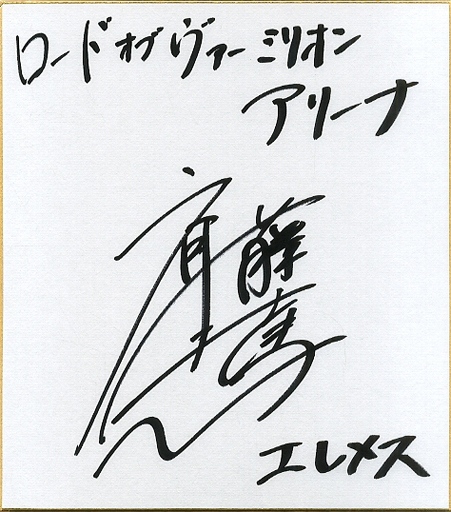 ロード オブ ヴァーミリオン
アリーナ
エレメス